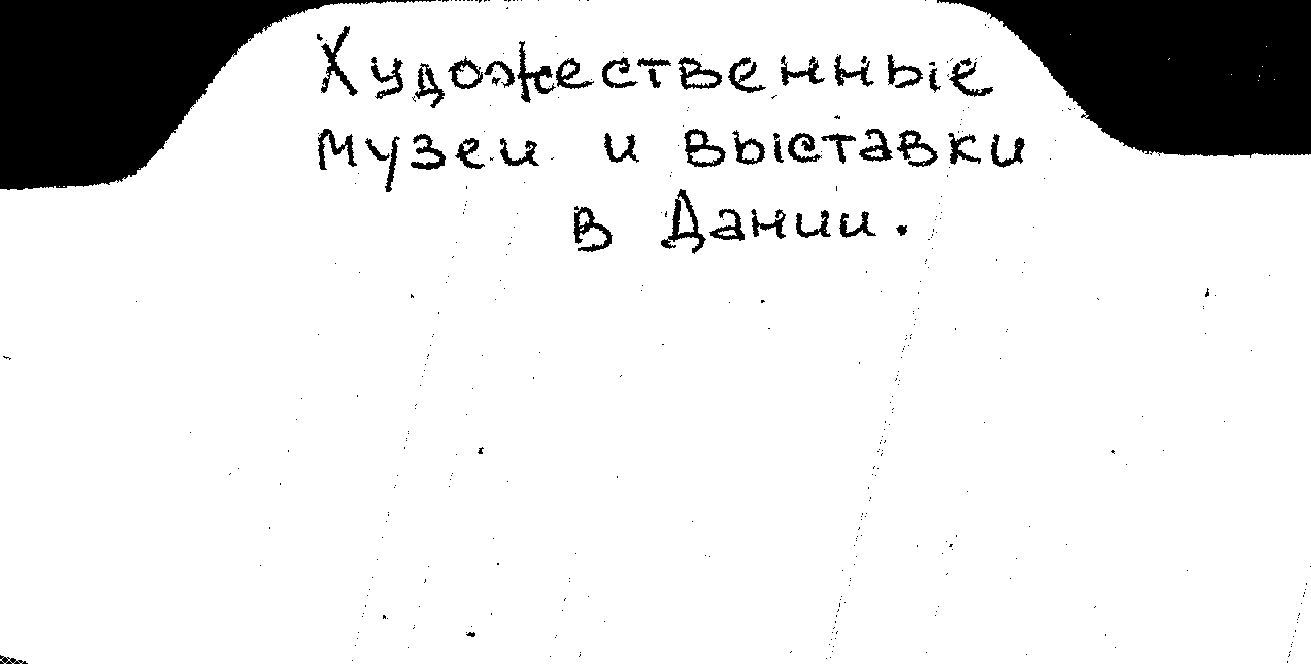 Художественные
музеи и выставки
в Дании.